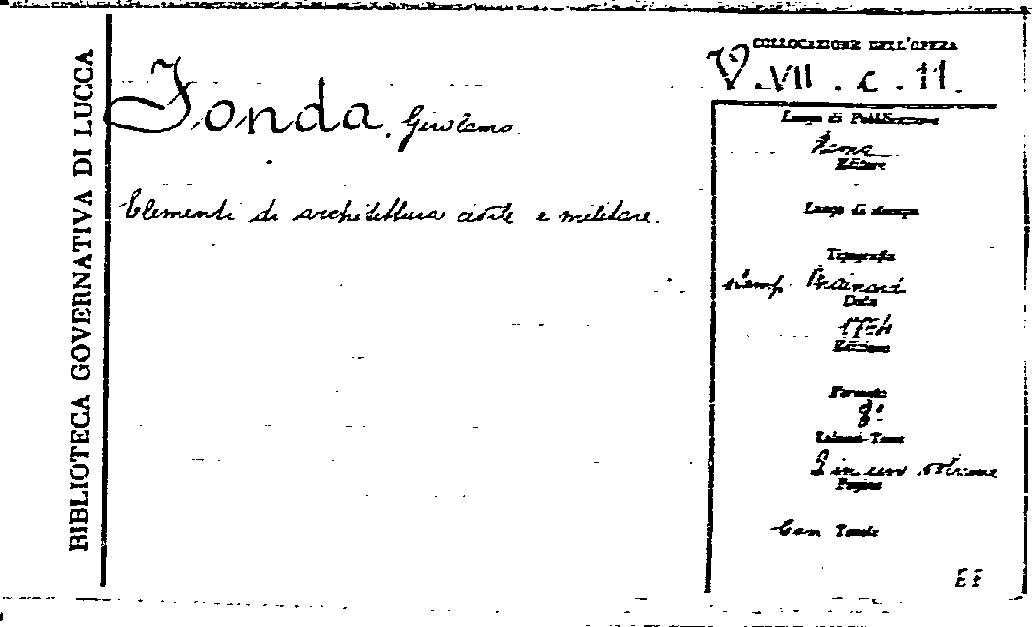 BIBLIOTECA GOVERNATIVA DI LUCCA
Fonda, Girolamo.
Elementi di architettura civile e militare.
COLLOCAZIONE DELL'OPERA
V. VII. c. 11.
Luogo di Pubblicazione
Roma
Editore
Luogo di stampa
Tipografia
stamp. Mainardi
Data
Edizione
Formato
8°
Volumi-Tomi
2 in un volume
Pagine
Con Tavole